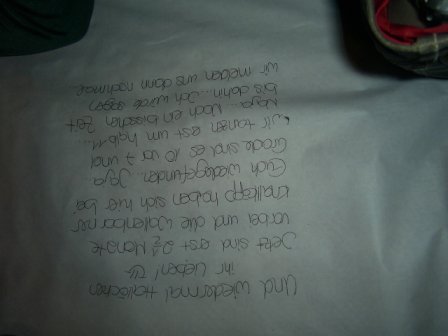 Und wiedermal Hallöchen
ihr Lieben!
Jetzt sind erst 2 ½ Monate
vorbei und die Wattenborner
Knallköpp haben sich hier bei
Euch wiedergefunden. Jaja
Grade sind es 10 vor 7 und
wir tanzen erst um halb 11...
Naja... Noch ein bisschen Zeit
bis dahin... Ich würde sagen
wir melden uns dann nochmal